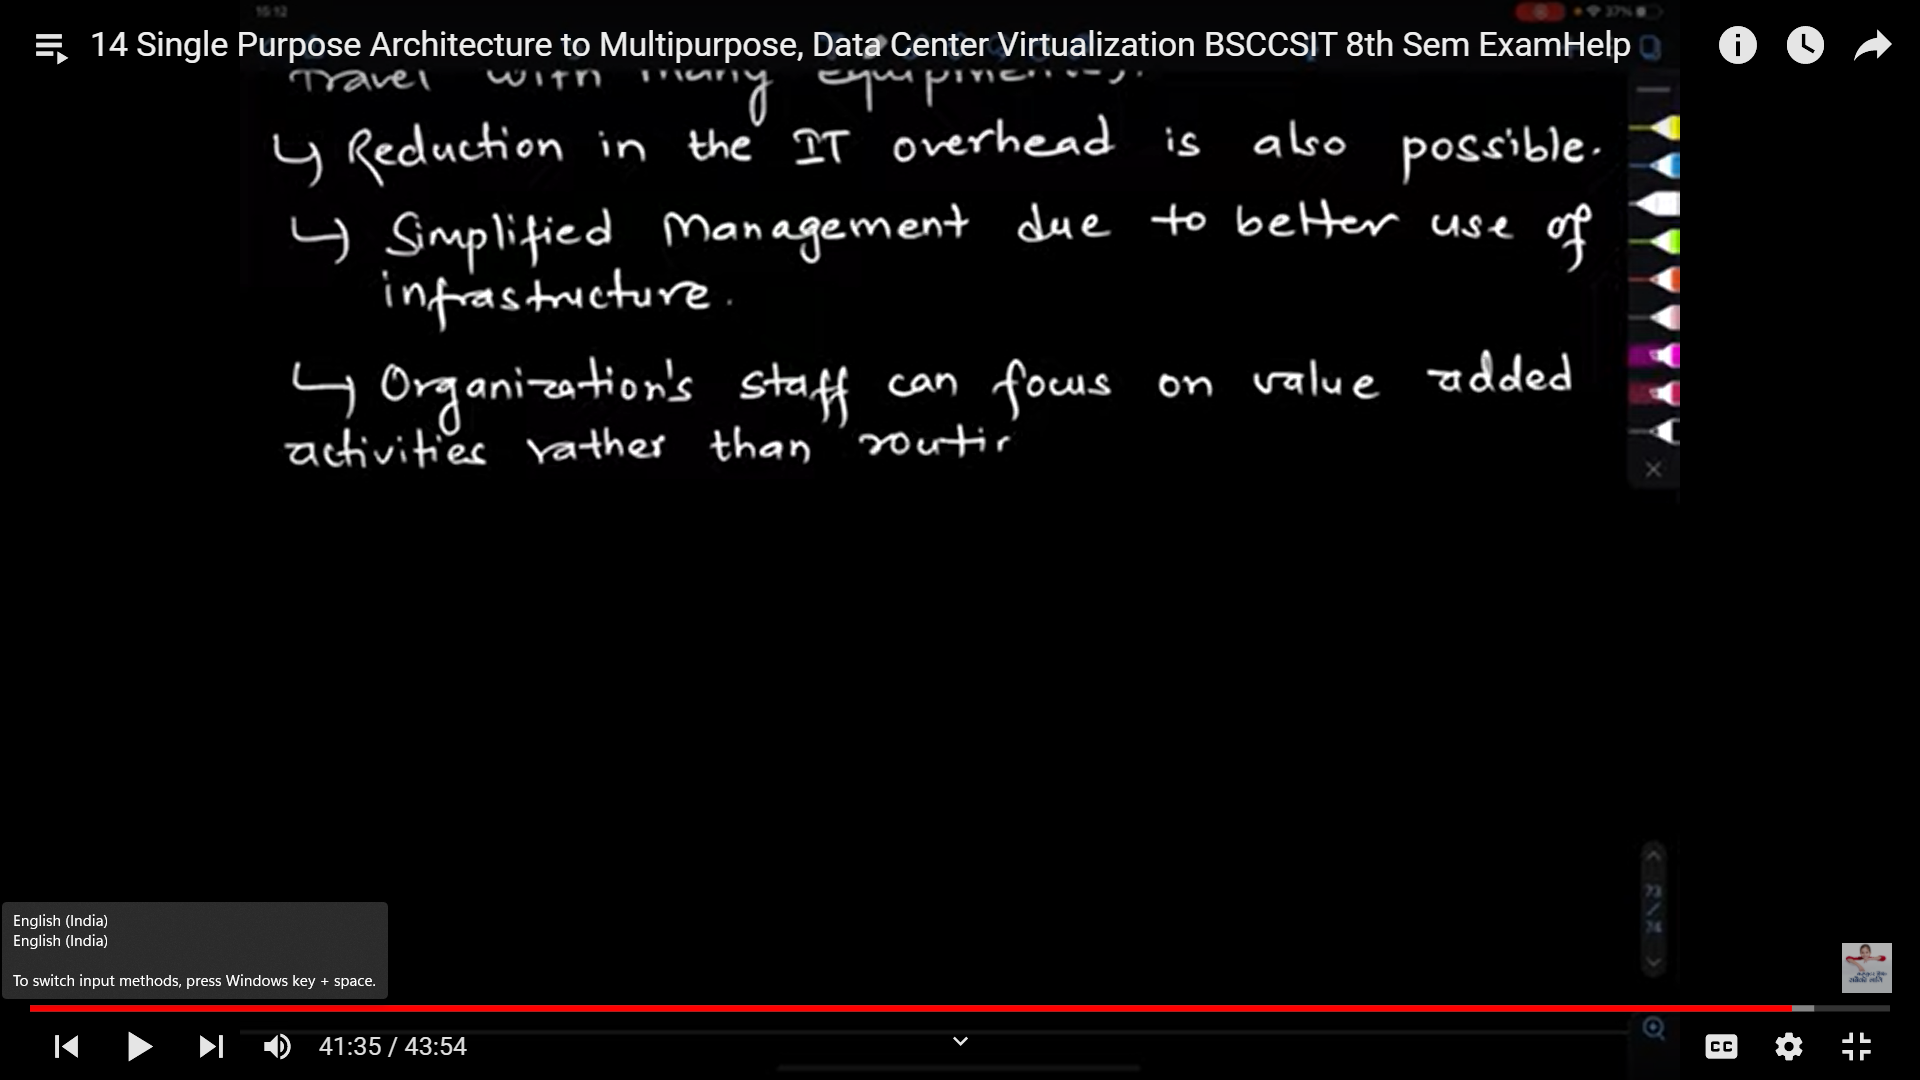 15:12
37%
14 Single Purpose Architecture to Multipurpose, Data Center Virtualization BSCCSIT 8th Sem ExamHelp
Travel with many equipments.
↳ Reduction in the IT overhead is also possible.
↳ Simplified Management due to better use of
infrastructure.
↳ Organization's staff can focus on value added
activities rather than routin
73
/
74
English (India)
English (India)
To switch input methods, press Windows key + space.
41:35 / 43:54
CC